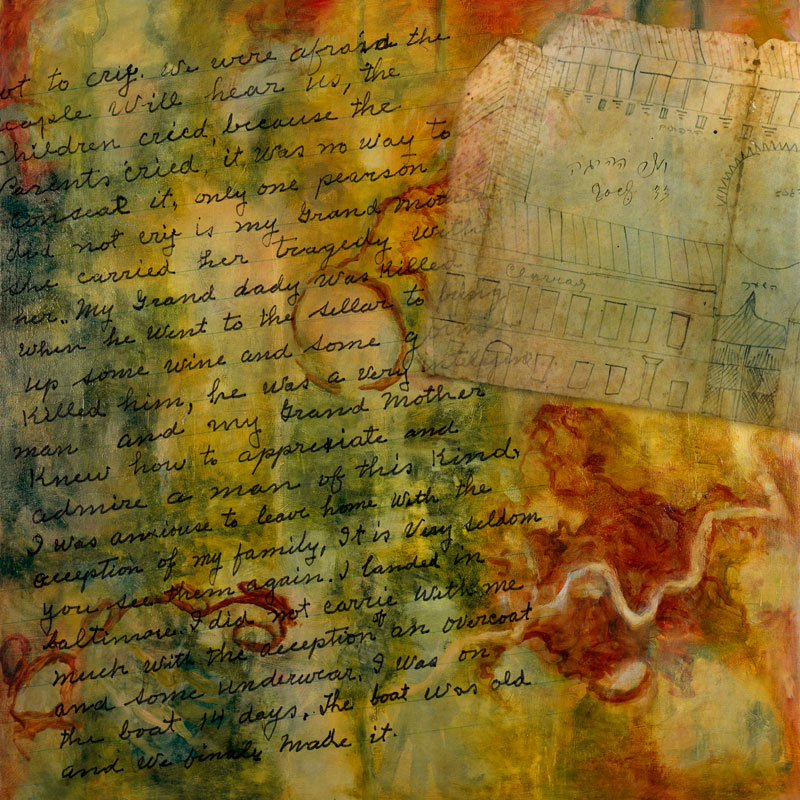 ot to cry. We were afraid the
eaple Will hear us, the
children cried, because the
Parents cried, it was no way to
conseal it, only one pearson
did not cry is my Grand Mother
she carried her tragedy With
her.. My Grand dady Was Killed
When he Went to the sellar to bring
up some wine and some
Killed him, he was a very
man and my Grand Mother
Knew how to appreciate and
admire a man of this Kind.
I was anxiouse to leave home With the
acception of my family, It is Very seldom
you see them again. I landed in
Baltimore. I did not carrie With me
much With the acception of an overcoat
and some underwear, I Was on
the boat 14 days, The boat was old
and We finaly made it.
33